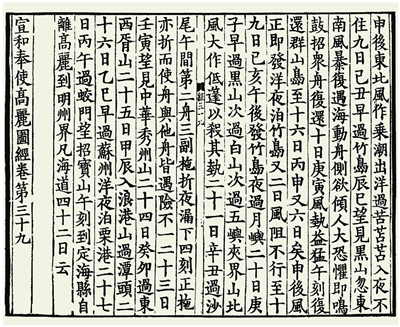 申後東北風作乘潮出洋過苦苦苫入夜不
住九日己丑早過竹島辰巳望見黑山忽東
南風暴復遇海動舟側欲傾人大恐懼即鳴
鼓招衆舟復還十日庚寅風勢益猛午刻復
還群山島至十六日丙申又六日矣申後風
正即發洋夜泊竹島又二日風阻不行至十
九日己亥午後發竹島夜過月嶼二十日庚
子早過黑山次過白山次過五嶼夾界山北
風大作低篷以殺其勢二十一日辛丑過沙
尾午間第二舟三副柂折夜漏下四刻正柂
亦折而使舟與他舟皆遇險不一二十三日
壬寅望見中華秀州山二十四日癸卯過東
西胥山二十五日甲辰入浪港山過潭頭二
十六日乙巳早過蘇州洋夜泊栗港二十七
日丙午過蛟門望招寶山午刻到定海縣自
離高麗到明州界凡海道四十二日云
宣和奉使高麗圖經卷第三十九